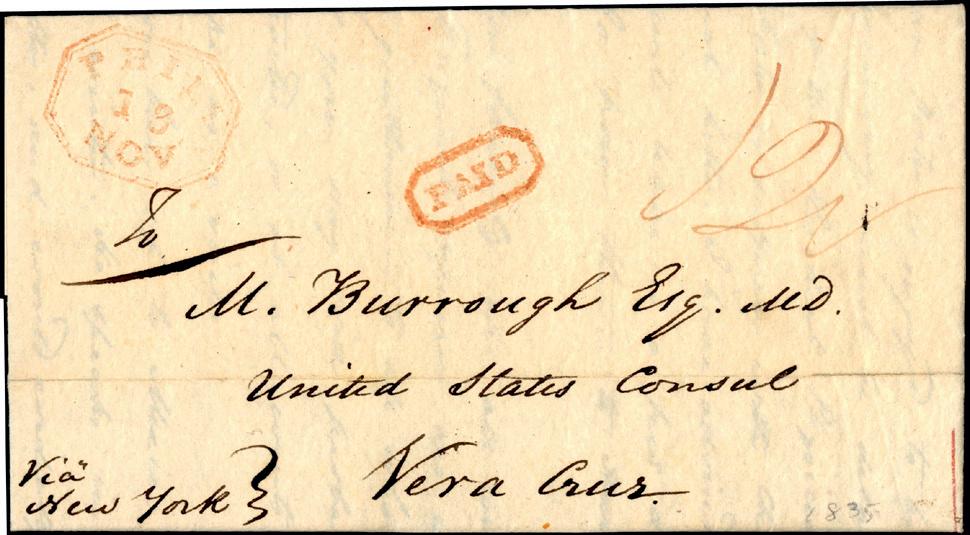 PHILA
18
NOV
PAID
12½
To
M. Burrough Esq. MD.
United States Consul
Vera Cruz
Viä
New York
1835